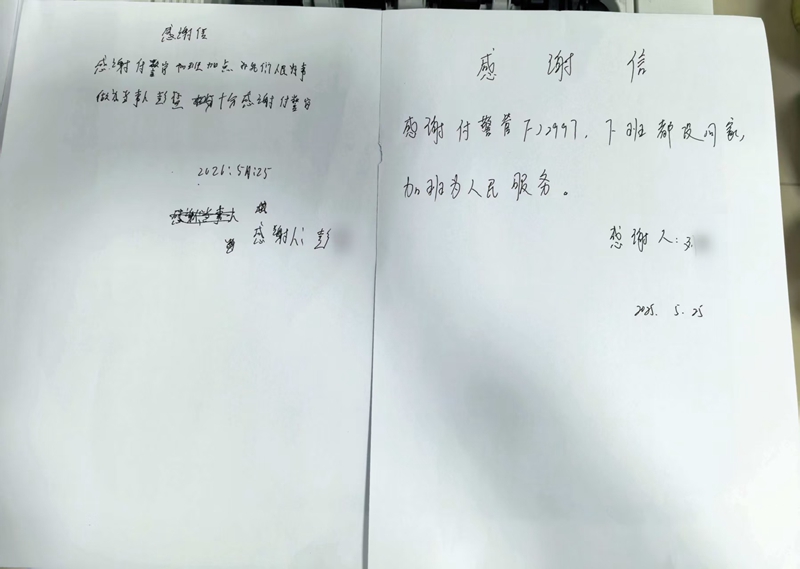 感谢信
感谢付警官加班加点 为我们人民办事
做为当事人彭 十分感谢付警官
2025.5月25
感谢当事人
感谢人：彭
感谢信
感谢付警官F)2997，下班都没回家，
加班为人民服务。
感谢人：
2025. 5. 25